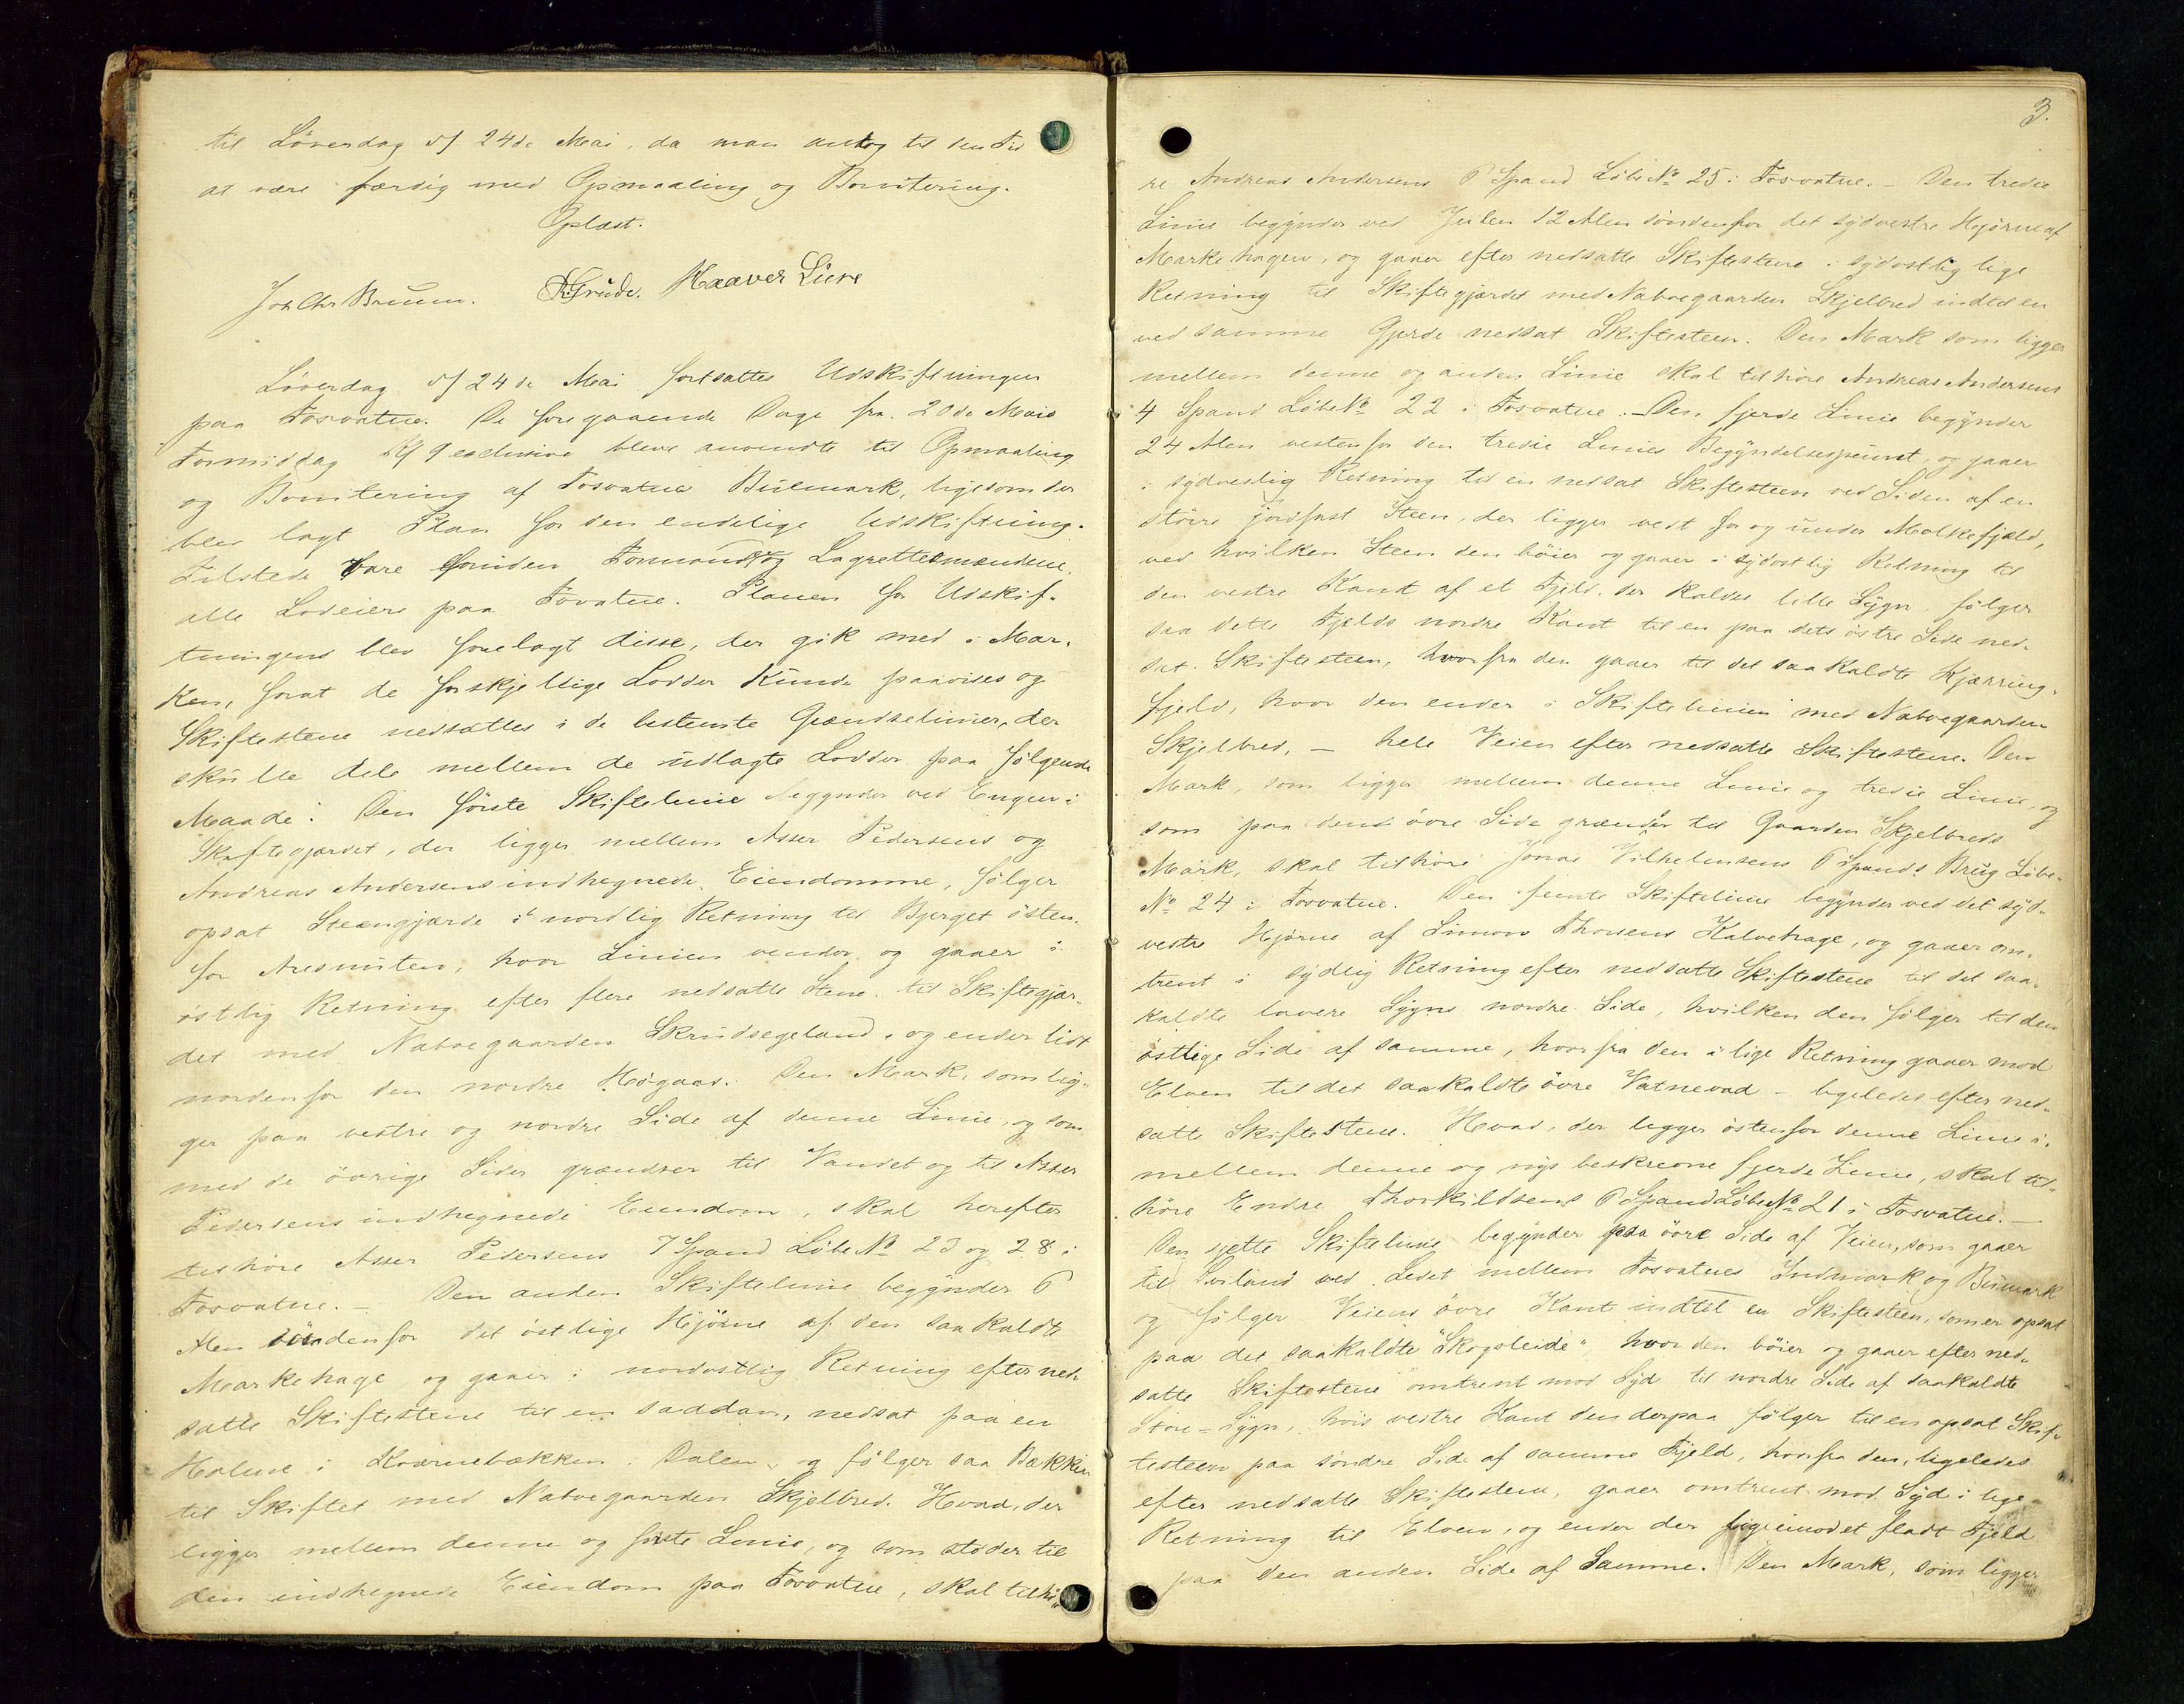 til Löverdag d/ 24de Mai, da man antog til den Tid
at være færdig med Opmaaling og Bonitering.
Oplæst.
Joh Chr Bruun. Grude. Haaver Lure
Löverdag d/ 24de Mai fortsattes Udskiftningen
paa Fosvatne. De foregaaende Dage fra 20de Mais
Formiddag Kl 9 exclusive bleve anvendte til Opmaaling
og Bonitering af Fosvatne Bumark, ligesom der
blev lagt Plan for den endelige Udskiftning.
Tilstede vare foruden Formand og Lagrettesmændene,
alle Lodeiere paa Fosvatne. Planen for Udskif-
tningens blev forelagt disse, der gik med i Mar-
ken, forat de forskjellige Lodder kunde paavises og
Skiftestene nedsættes i de bestemte Grændselinier, der
skulle dele mellem de udlagte Lodder paa fölgende
Maade: Den förste Skiftelinie begynder ved Engen i
Skiftegjærdet, der ligger mellem Asser Pedersens og
Andreas Andersens indhegnede Eiendomme, fölger
opsat Steengjærde i nordlig Retning til Bjerget östen-
for Aresnuten, hvor Linien vender og gaaer i
östlig Retning efter flere nedsatte Stene til Skiftegjær-
det med Naboegaarden Skrudsegeland, og ender lidt
nordenfor den nordre Högaas. Den Mark, som lig-
ger paa vestre og nordre Side af denne Linie, og som
med de övrige Sider grændser til Vandet og til Asser
Pedersens indhegnede Eiendom, skal herefter
tilhöre Asser Pedersens 7 Spand Löbe No 23 og 28 i
Fosvatne. – Den anden Skiftelinie begynder 6
Alen söndenfor det östlige Hjörne af den saakaldte
Markehage og gaaer i nordostlig Retning efter ned-
satte Skiftestene til en saadan, nedsat paa en
Holme i Kværnebækken i Dalen, og fölger saa Bækken
til Skiftet med Naboegaarden Skjelbred. Hvad, der
ligger mellem denne og förste Linie, og som stöder til
den indhegnede Eiendom paa Fosvatne, skal tilhö-
3.
re Andreas Andersens 6 Spand Löbe No 25 i Fosvatne. – Den tredie
Linie begynder ved Julen 12 Alen söndenfor det sydvestre Hjörne af
Markehagen, og gaaer efter nedsatte Skiftestene i sydostlig lige
Retning til Skiftegjærdet med Naboegaarden Skjelbred indtil en
ved samme Gjerde nedsat Skiftesteen. Den Mark som ligger
mellem denne og anden Linie skal tilhöre Andreas Andersens
4 Spand Löbe No 22 i Fosvatne. – Den fjerde Linie begynder
24 Alen vestenfor den tredie Linies Begyndelsespunct, og gaaer
i sydvestlig Retning til en nedsat Skiftesteen ved Siden af en
större jordfast Steen, der ligger vest for og under Molkefjeld,
ved hvilken Steen den böier og gaaer i sydostlig Retning til
den vestre Kant af et Fjeld, der kaldes lille Sygn, fölger
saa dette Fjelds nordre Kant til en paa dets östre Side ned-
sat Skiftesteen, hvorfra den gaaer til det saakaldte Kjærring-
fjeld, hvor den ender i Skiftelinien med Naboegaarden
Skjelbred, – hele Veien efter nedsatte Skiftestene. Den
Mark, som ligger mellem denne Linie og tredie Linie, og
som paa den övre Side grændser til Gaarden Skjelbreds
Mark, skal tilhöre Jonas Vilhelmsens 6 Spands Brug Löbe-
No 24 i Fosvatne. Den femte Skiftelinie begynder ved det syd-
vestre Hjörne af Simon Thorsens Kalvehage, og gaaer om-
trent i sydlig Retning efter nedsatte Skiftestene til det saa-
kaldte lavere Sygns nordre Side, hvilken den fölger til den
östlige Side af samme, hvorfra den i lige Retning gaaer mod
Elven til det saakaldte övre Vatnevad – ligeledes efter ned-
satte Skiftestene. Hvad, der ligger östenfor denne Linie i-
mellem denne og nys beskrevne fjerde Linie, skal til-
höre Endre Thorkildsens 6 Spand Löbe No 21 i Fosvatne. –
Den sjette Skiftelinie begynder paa övre Side af Veien, som gaaer
til Sviland ved Ledet mellem Fosvatnes Indmark og Bumark
og fölger Veiens övre Kant indtil en Skiftesteen, som er opsat
paa det saakaldte "Skogsleide", hvor den böier og gaaer efter ned-
satte Skiftestene omtrent mod Syd til nordre Side af saakaldte
Store-Sygn, hvis vestre Kant den derpaa fölger til en opsat Skif-
testeen paa söndre Side af samme Fjeld, hvorfra den, ligeledes
efter nedsatte Skiftestene, gaaer omtrent mod Syd i lige
Retning til Elven, og ender der ligeimodet fladt Fjeld
paa den anden Side af Samme. Den Mark, som ligger